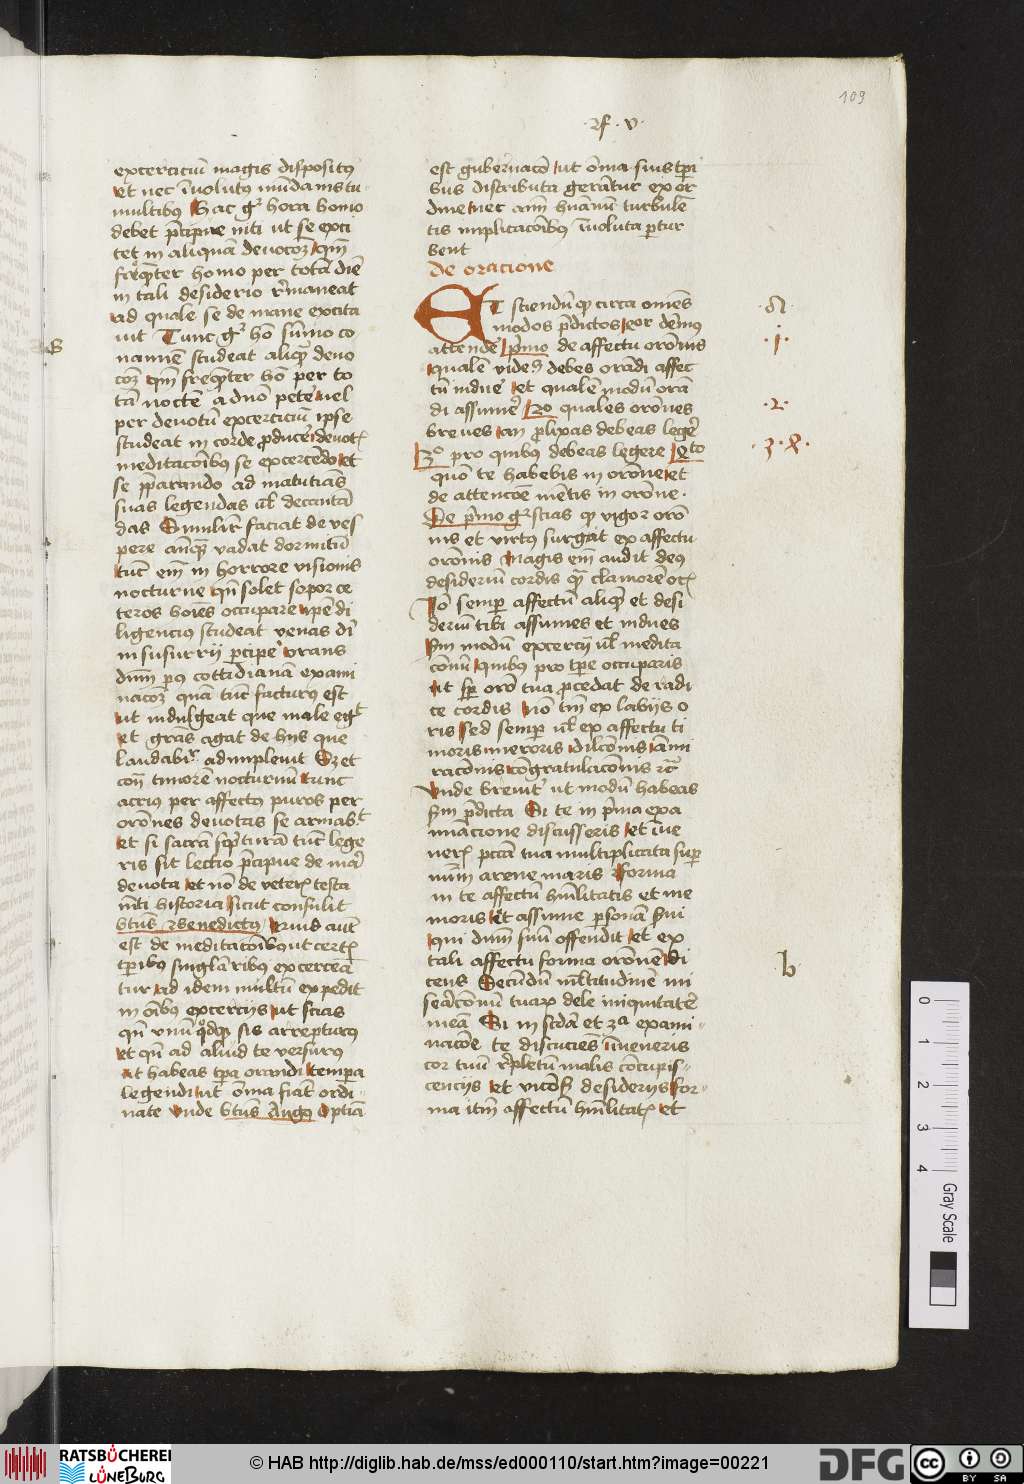 109
·rf· v·
excerciciū magis dispositꝰ
et nec īuolutꝰ mūdanis tu-
multibꝰ Hac gͦ hora homo
debet p̄cipue niti ut se exci
tet in aliquā deuocōꝫ qm̄
freq̄ter homo per totā diē
in tali desiderio ꝑmaneat
ad quale se de mane excita
uit Tunc gͦ hō sūmo co
namine studeat aliq̄ deuo
cōꝫ qm̄ freq̄ter hō per to
tā noctē a dnō pete᷑ uel
per deuotū excerciciū ipse
studeat in corde ꝓduce᷑ deuotꝭ
meditacōibꝰ se excercēdo et
se p̄parando ad matutinās
suas legendas ul̄ decantā
das Similit̄ faciat de ves
pere anq̄ vadat dormitū
tūc em̄ in horrore visionis
nocturne qn̄ solet sopor ce
teros hoīes occupare ipē di
ligencius studeat venas dī
ni susurrij p̄cipe᷑ trans
dum p̄ꝰ cottidianā exami
nacōꝫ quā tūc facturꝰ est
ut indulgeat que male egͭ
et grās agat de hijs que
laudabilͬ adimpleuit Sꝫ et
cōꝫ timorē nocturnū tunc
acrius per affectꝰ puros per
orōnes deuotas se armabͭ
et si sacrā sc̄pturā tūc lege
ris sit lectio p̄cipue de mā᷑
deuota et nō de veterꝭ testa
mēti historia sicut consulit
btūs Benedictꝰ Quid autē
est de meditacōibꝰ ut certꝭ
tꝑibꝰ singlāribꝰ excerceā
tur ad idem multū expedit
in oībꝰ excercijs ut scias
qn̄ vnū qͦdqꝫ sis arrepturꝰ
et qn̄ ad aliud te versurꝰ
Et habeas tꝑa orandi tempera
legendi ut oīma fiāt ordi
nate vnde btūs Augꝰ Optīa
B
est gubernacō ut oīma suis tꝑi
bus distributa gerātur ex or
dine nec aīm hūanū turbulē
tis implicacōibꝰ īuoluta ꝑtur
bent
De oracione
ET sciendū ꝙ circa omēs
modos p̄dictos eor demꝰ
attende᷑ p̄mo de affectu orōnis
qualē videꝫ debes orādi affec
tū indue᷑ et qualē modū orā
di assume᷑ 2o quales orōnes
breues an ꝓlixas debeas lege᷑
3o pro quibꝰ debeas legere 4to
quōo te habebis in orōne et
de attencōe mētis in orōne ·
De p̄mo gͦ scias ꝙ vigor orō
nis et virtꝰ surgat ex affectu
orōnis Magis em̄ audit deꝰ
desideriū cordis q̄ clamorē orꝭ
Iō semꝑ affectū aliq̄ et desi
deriū tibi assumes et indues
scdm modū excercij ul̄ medita
cōnū quibꝰ pro tꝑe occuparis
ut sꝑ orō tua ꝓcedat de radi
ce cordis nō tm̄ ex labijs o
ris Sed semꝑ ul̄ ex affectu ti
moris meroris dilcōnis admi
racōnis cōgratulacōnis ꝛc̄
vnde breuit᷑ ut modū habeas
scdm p̄dicta Si te in p̄ma exa
minacione discusseris et īue
nerꝭ pccā tua multiplicata suꝑ
num arene maris Forma
in te affectū hūilitatis et me
moris et assume ꝑsonā sui
qui dnm suū offendit et ex
tali affectu forma orōnē di
cens Secūdū mltitudinē mi
seācōnū tuaꝝ dele iniquitatē
meā Si in scdā et 3a exami-
nacōe te discucies īueneris
cor tuū ꝑpletū malis cōcupis-
cencijs et vicōsꝭ desiderijs for-
ma itm̄ affectū hūilitatꝭ et
·A·
·i·
·2·
·3· 4·
b
0
1
2
3
4
Gray Scale
RATSBÜCHEREI
LÜNEBURG
© HAB http://diglib.hab.de/mss/ed000110/start.htm?image=00221
DFG
cc BY SA